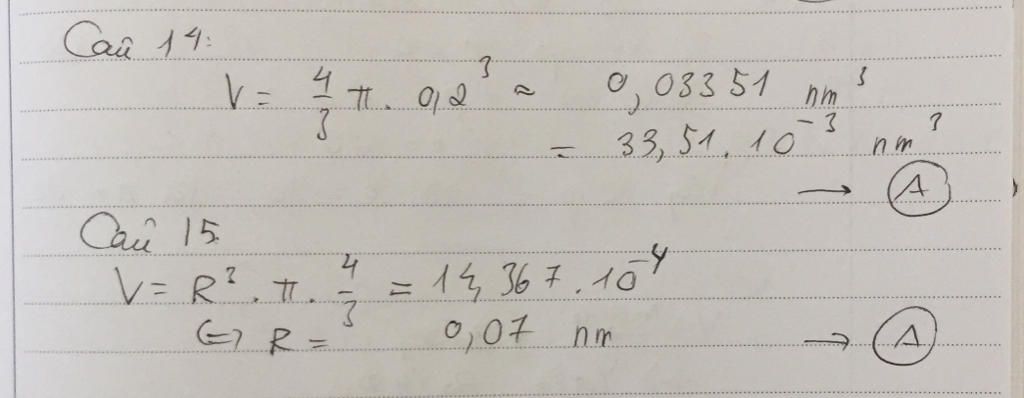 Câu 14:
V = 4/3 π . 0,2³ ≈ 0,03351 nm³
= 33,51 . 10⁻³ nm³
→ A
Câu 15
V = R³ . π . 4/3 = 14,367 . 10⁻⁴
⇔ R = 0,07 nm → A